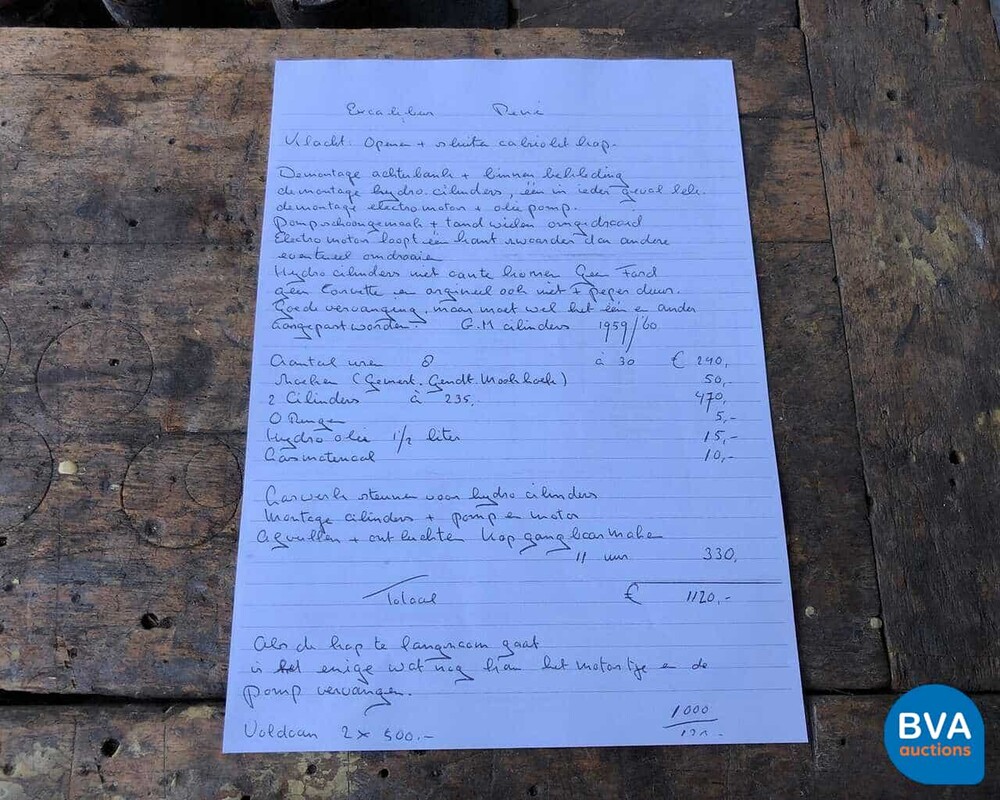 Excaliber René
Klacht: Openen + sluiten cabriolet kap.
Demontage achterbank + binnen bekleding
demontage hydro. cilinders, één in ieder geval lek.
demontage electromotor + olie pomp.
pomp schoongemaakt + tandwielen omgedraaid
Electro motor loopt één kant zwaarder dan andere
eventueel omdraaien
Hydro cilinders niet aan te komen Geen Ford
geen Corvette en orgineel ook niet + peper duur.
Goede vervanging, maar moet wel het één e ander
aangepast worden. G.M cilinders 1959/'60
Aantal uren 8 à 30 € 240,
zoeken (Gemert. Gendt. Mookhoek) 50,-
2 Cilinders à 235, 470,
O Ringen 5,-
Hydro olie 1 1/2 liter 15,-
Lasmateriaal 10,-
Laswerk steunen voor hydro cilinders
Montage cilinders + pomp en motor
Afvullen + ontluchten kap gangbaar maken
11 uur 330,
Totaal € 1120,-
Als de kap te langzaam gaat
is het enige wat nog kan het motortje en de
pomp vervangen.
Voldaan 2 x 500,-
1000
BVA
auctions